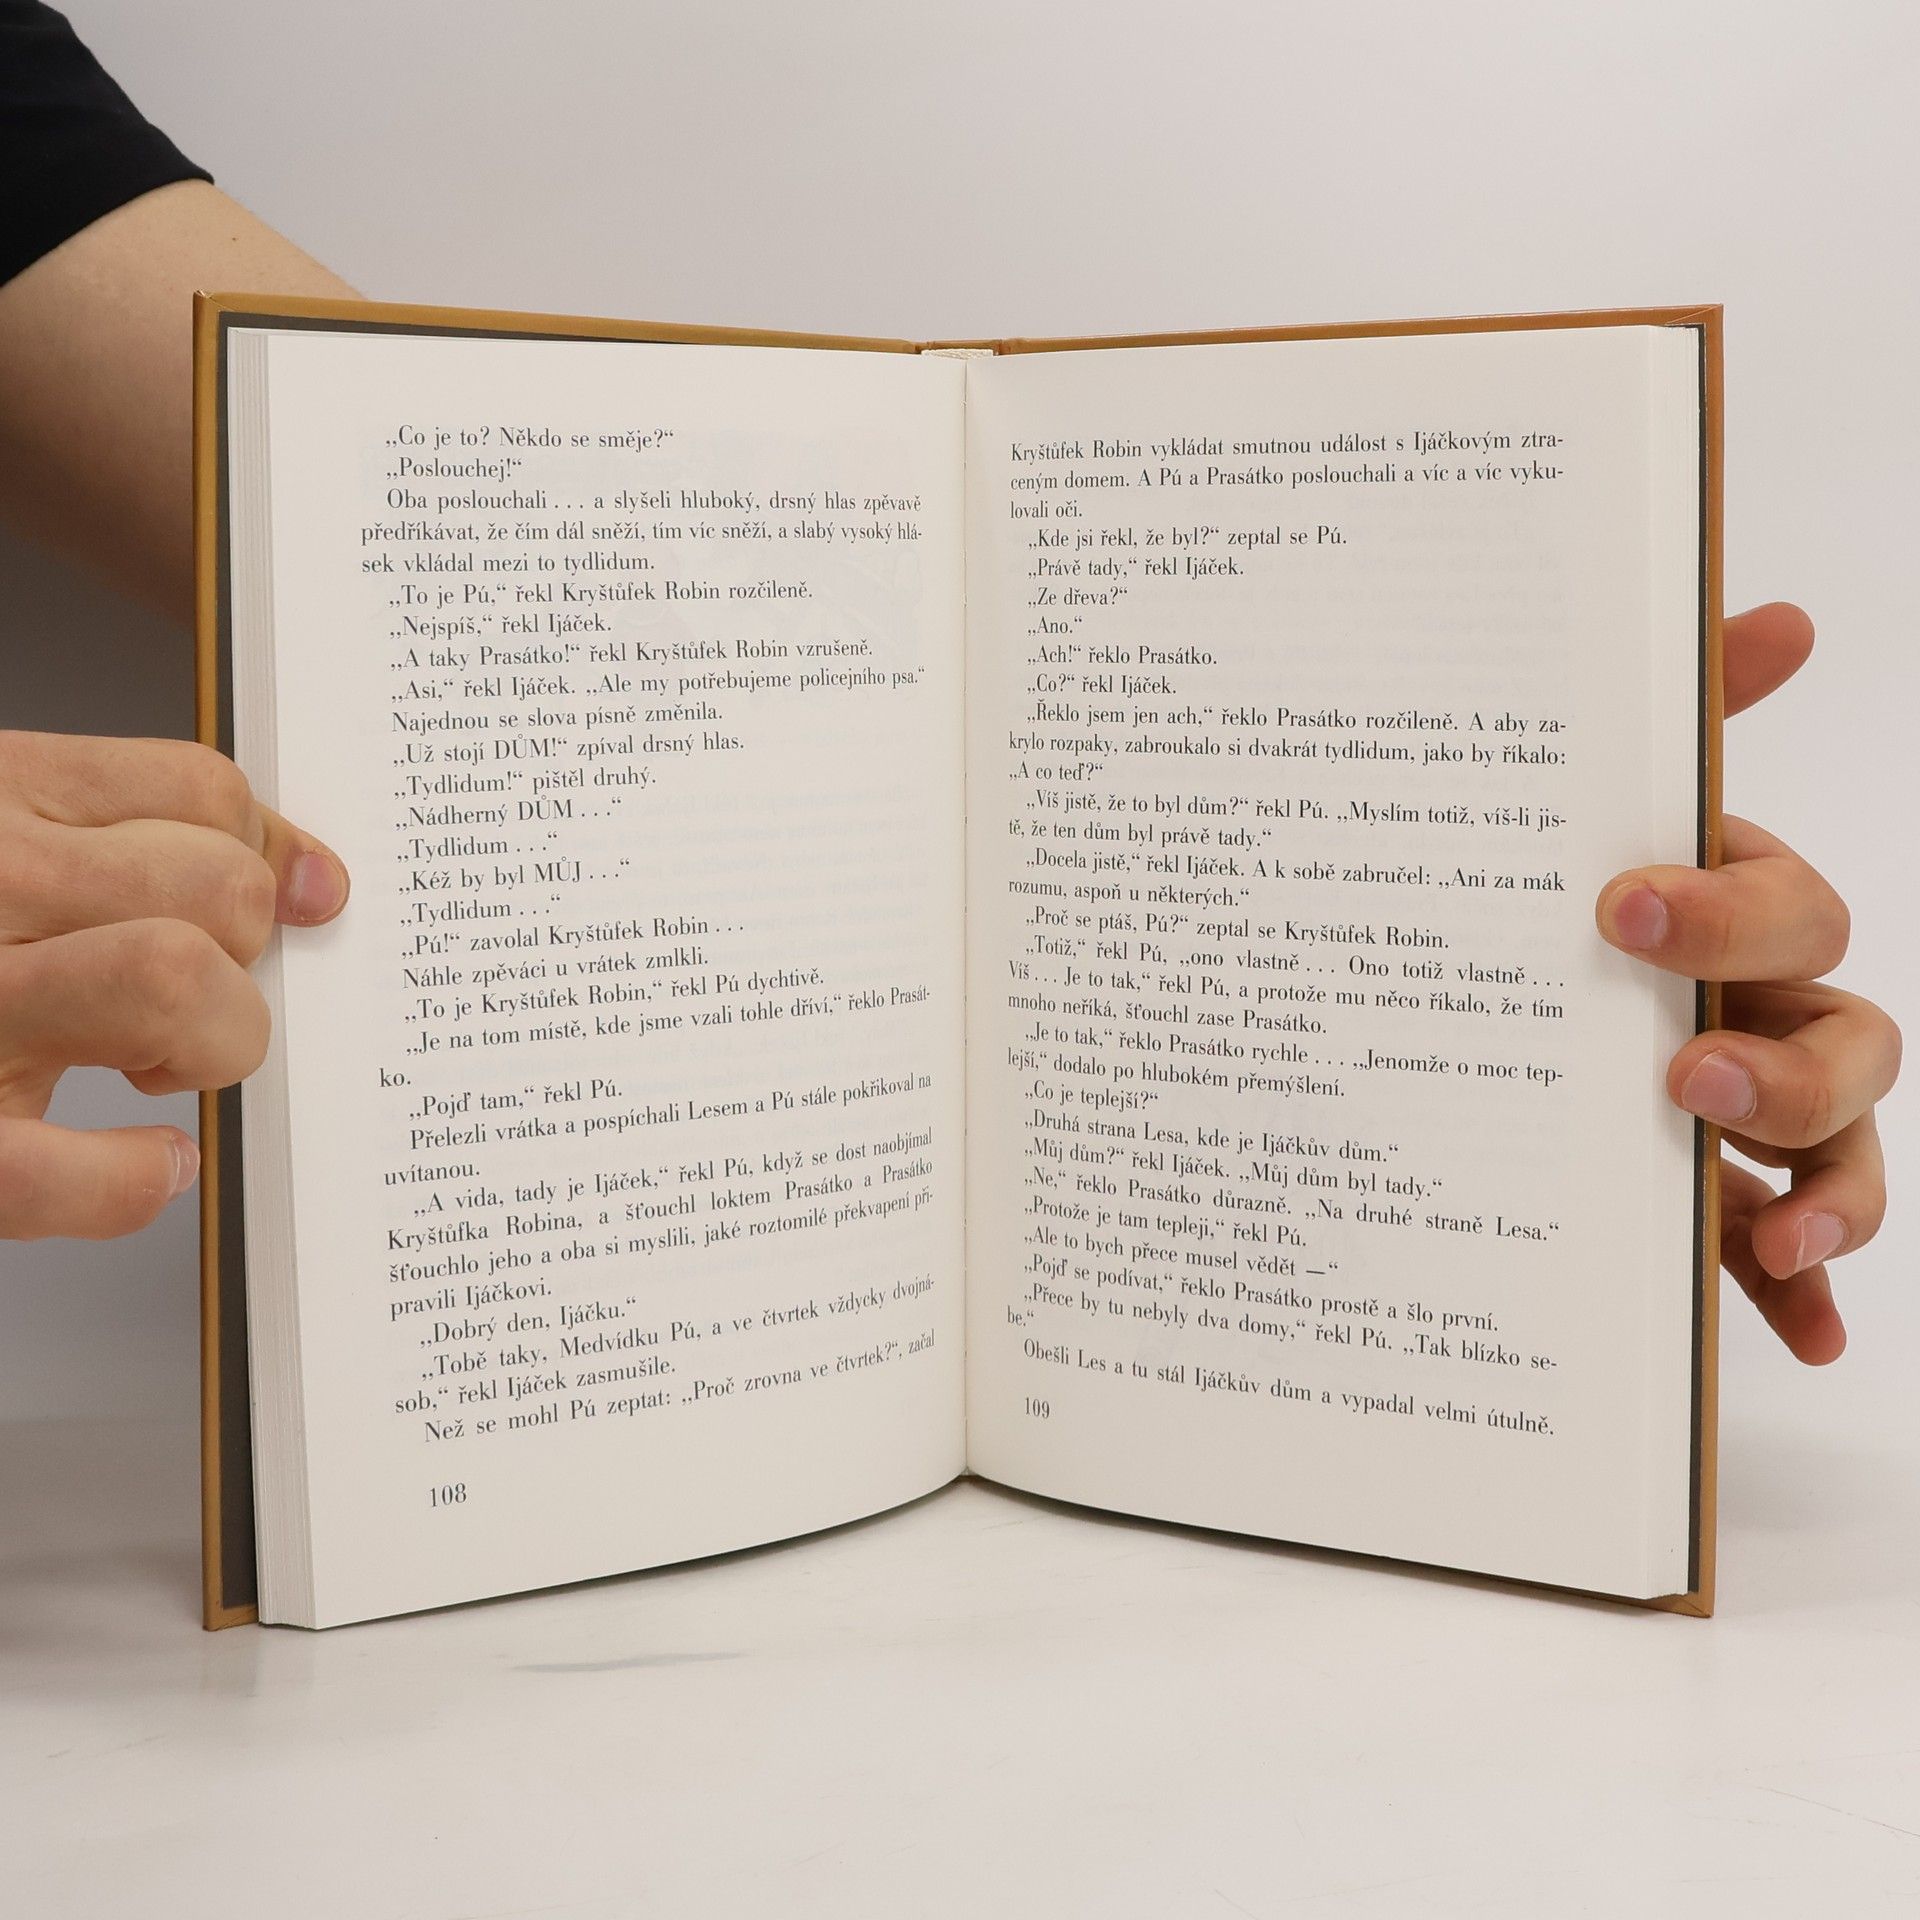 „Co je to? Někdo se směje?“
„Poslouchej!“
Oba poslouchali . . . a slyšeli hluboký, drsný hlas zpěvavě
předříkávat, že čím dál sněží, tím víc sněží, a slabý vysoký hlá-
sek vkládal mezi to tydlidum.
„To je Pú,“ řekl Kryštůfek Robin rozčileně.
„Nejspíš,“ řekl Ijáček.
„A taky Prasátko!“ řekl Kryštůfek Robin vzrušeně.
„Asi,“ řekl Ijáček. „Ale my potřebujeme policejního psa.“
Najednou se slova písně změnila.
„Už stojí DŮM!“ zpíval drsný hlas.
„Tydlidum!“ pištěl druhý.
„Nádherný DŮM . . .“
„Tydlidum . . .“
„Kéž by byl MŮJ . . .“
„Tydlidum . . .“
„Pú!“ zavolal Kryštůfek Robin . . .
Náhle zpěváci u vrátek zmlkli.
„To je Kryštůfek Robin,“ řekl Pú dychtivě.
„Je na tom místě, kde jsme vzali tohle dříví,“ řeklo Prasát-
ko.
„Pojď tam,“ řekl Pú.
Přelezli vrátka a pospíchali Lesem a Pú stále pokřikoval na
uvítanou.
„A vida, tady je Ijáček,“ řekl Pú, když se dost naobjímal
Kryštůfka Robina, a šťouchl loktem Prasátko a Prasátko
šťouchlo jeho a oba si myslili, jaké roztomilé překvapení při-
pravili Ijáčkovi.
„Dobrý den, Ijáčku.“
„Tobě taky, Medvídku Pú, a ve čtvrtek vždycky dvojná-
sob,“ řekl Ijáček zasmušile.
Než se mohl Pú zeptat: „Proč zrovna ve čtvrtek?“, začal
108
Kryštůfek Robin vykládat smutnou událost s Ijáčkovým ztra-
ceným domem. A Pú a Prasátko poslouchali a víc a víc vyku-
lovali oči.
„Kde jsi řekl, že byl?“ zeptal se Pú.
„Právě tady,“ řekl Ijáček.
„Ze dřeva?“
„Ano.“
„Ach!“ řeklo Prasátko.
„Co?“ řekl Ijáček.
„Řeklo jsem jen ach,“ řeklo Prasátko rozčileně. A aby za-
krylo rozpaky, zabroukalo si dvakrát tydlidum, jako by říkalo:
„A co teď?“
„Víš jistě, že to byl dům?“ řekl Pú. „Myslím totiž, víš-li jis-
tě, že ten dům byl právě tady.“
„Docela jistě,“ řekl Ijáček. A k sobě zabručel: „Ani za mák
rozumu, aspoň u některých.“
„Proč se ptáš, Pú?“ zeptal se Kryštůfek Robin.
„Totiž,“ řekl Pú, „ono vlastně . . . Ono totiž vlastně . . .
Víš . . . Je to tak,“ řekl Pú, a protože mu něco říkalo, že tím
mnoho neříká, šťouchl zase Prasátko.
„Je to tak,“ řeklo Prasátko rychle . . . „Jenomže o moc tep-
lejší,“ dodalo po hlubokém přemýšlení.
„Co je teplejší?“
„Druhá strana Lesa, kde je Ijáčkův dům.“
„Můj dům?“ řekl Ijáček. „Můj dům byl tady.“
„Ne,“ řeklo Prasátko důrazně. „Na druhé straně Lesa.“
„Protože je tam tepleji,“ řekl Pú.
„Ale to bych přece musel vědět —“
„Pojď se podívat,“ řeklo Prasátko prostě a šlo první.
„Přece by tu nebyly dva domy,“ řekl Pú. „Tak blízko se-
be.“
Obešli Les a tu stál Ijáčkův dům a vypadal velmi útulně.
109